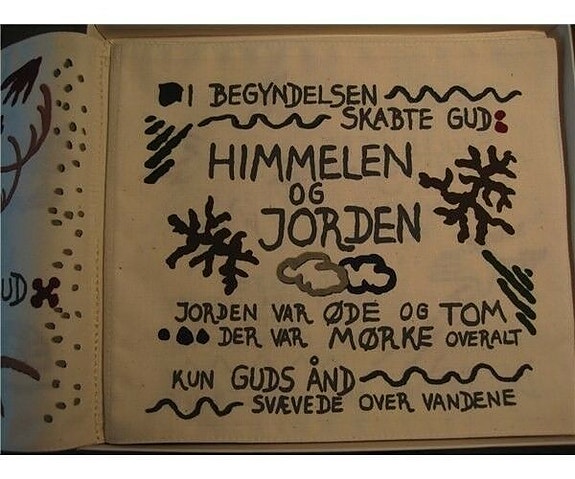 I BEGYNDELSEN
SKABTE GUD:
HIMMELEN
OG
JORDEN
JORDEN VAR ØDE OG TOM
DER VAR MØRKE OVERALT
KUN GUDS ÅND
SVÆVEDE OVER VANDENE
UD